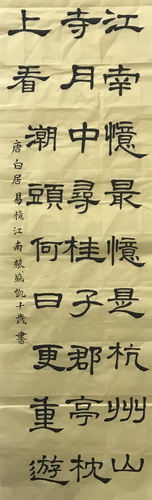 江南憶最憶是杭州山
寺月中尋桂子郡亭枕
上看潮頭何日更重遊
唐白居易憶江南凱十歲書